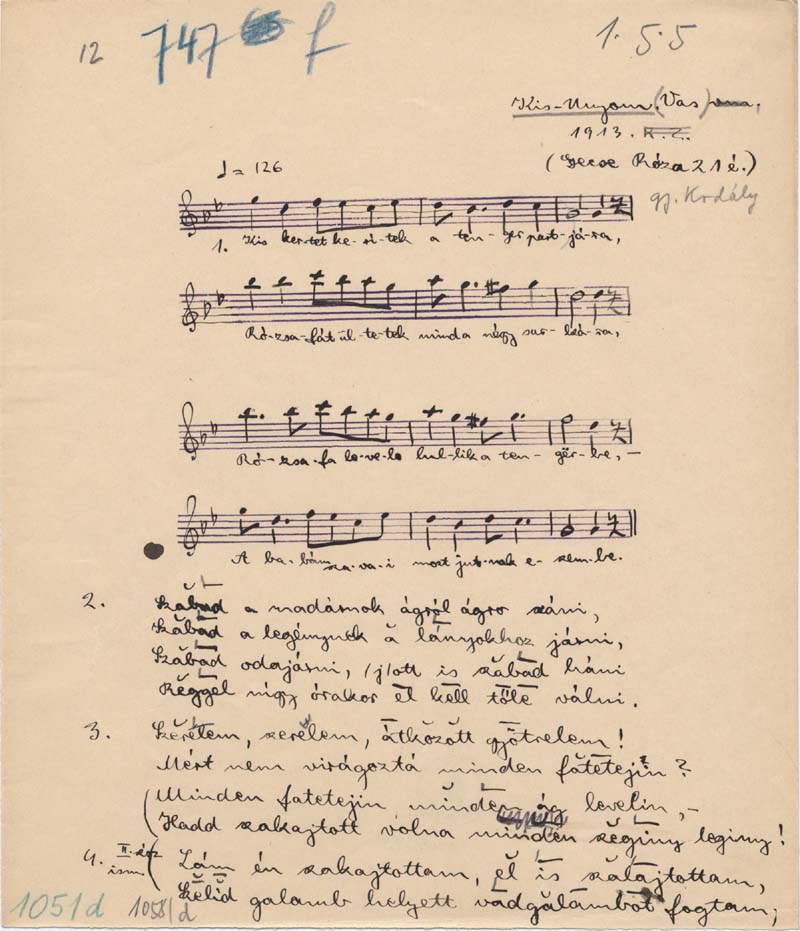 12
747 f
1.5.5
Kis-Unyom (Vas)
1913. K. Z.
(Gecse Róza 21é.)
gy. Kodály
♩= 126
1. Kis ker-tet ke-rí-tek a ten-ger part-já-ra,
Ró-zsa-fát ül-te-tek mind a négy sar-kára,
Ró-zsa-fa le-ve-le hul-lik a ten-gër-be, –
A ba-bám sza-va-i most jut-nak e-szem-be.
2. Szăbad a madárnok ágról ágro száni,
Szăbad a legénynek ă lányokhoz járni,
Szăbad odajárni, /j/ott is szăbad háni
Rëggel nígy órakor ël këll tőle válni.
3. Szerelem, szerelem, átkozott gyötrelem!
Mért nem virágoztá minden fătetejin?
Minden fatetejin, minden ág levelin, –
Hadd szakajtott volna minden szëginy leginy!
4. Lám én szakajtottam, ël is szalajtottam,
Szëlid galamb helyett vadgălambot fogtam;
1051/d 1058/d